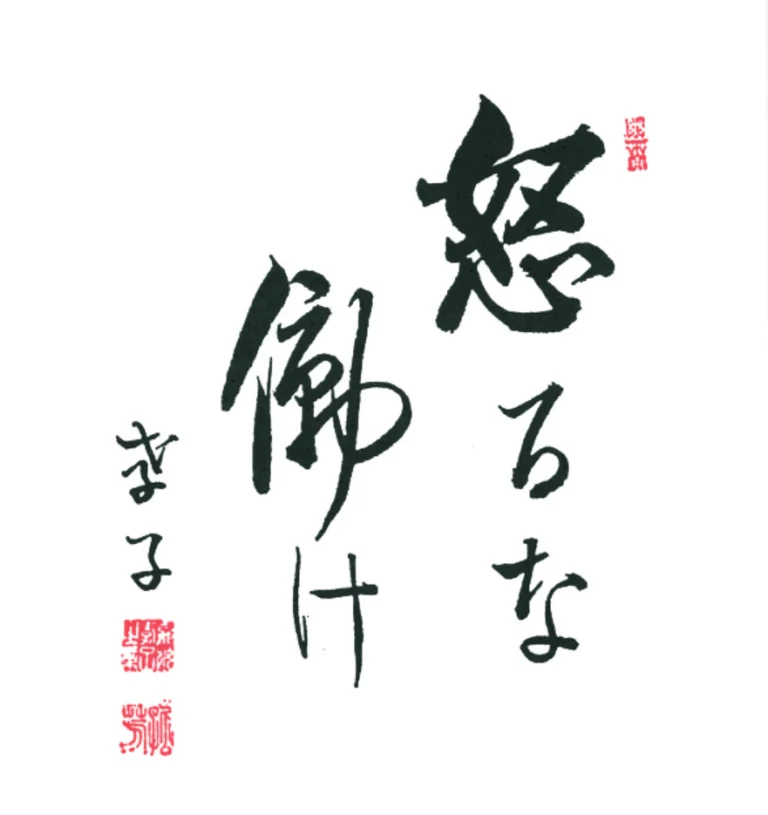 怒るな
働け
孝子